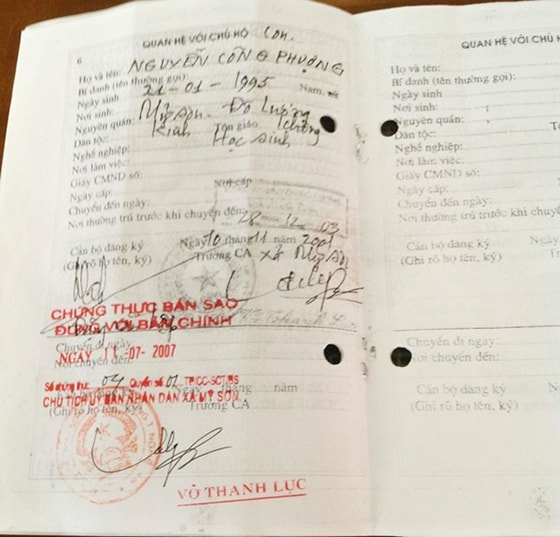 6
QUAN HỆ VỚI CHỦ HỘ Con.
Họ và tên: NGUYỄN CÔNG PHƯỢNG
Bí danh (tên thường gọi):
Ngày sinh 21-01-1995 Nam,
Nơi sinh:
Nguyên quán: Mỹ Sơn. Đô Lương
Dân tộc: Kinh Tôn giáo không
Nghề nghiệp: Học sinh
Nơi làm việc:
Giấy CMND số: Nơi cấp
Ngày cấp:
Chuyển đến ngày:
Nơi thường trú trước khi chuyển đến: 28-12-03
Ngày 10 tháng 11 năm
Cán bộ đăng ký Trưởng CA xã Mỹ Sơn
(Ghi rõ họ tên, ký)
CHỨNG THỰC BẢN SAO
ĐÚNG VỚI BẢN CHÍNH
Chuyển đi ngày
NGÀY 11-07-2007
Nơi chuyển đến:
Số chứng thực 04 Quyển số 01 TP/CC-SCT/BS
Ngày tháng năm
CHỦ TỊCH ỦY BAN NHÂN DÂN XÃ MỸ SƠN
(Ghi rõ họ tên, ký) Trưởng CA
VÕ THANH LỰC
QUAN HỆ VỚI CHỦ
Họ và tên:
Bí danh (tên thường gọi):
Ngày sinh
Nơi sinh:
Nguyên quán:
Dân tộc:
Nghề nghiệp:
Nơi làm việc:
Giấy CMND số:
Ngày cấp:
Chuyển đến ngày:
Nơi thường trú trước khi chuyển
Cán bộ đăng ký
(Ghi rõ họ tên, ký)
Chuyển đi ngày:
Nơi chuyển đến:
Cán bộ đăng ký
(Ghi rõ họ tên, ký)